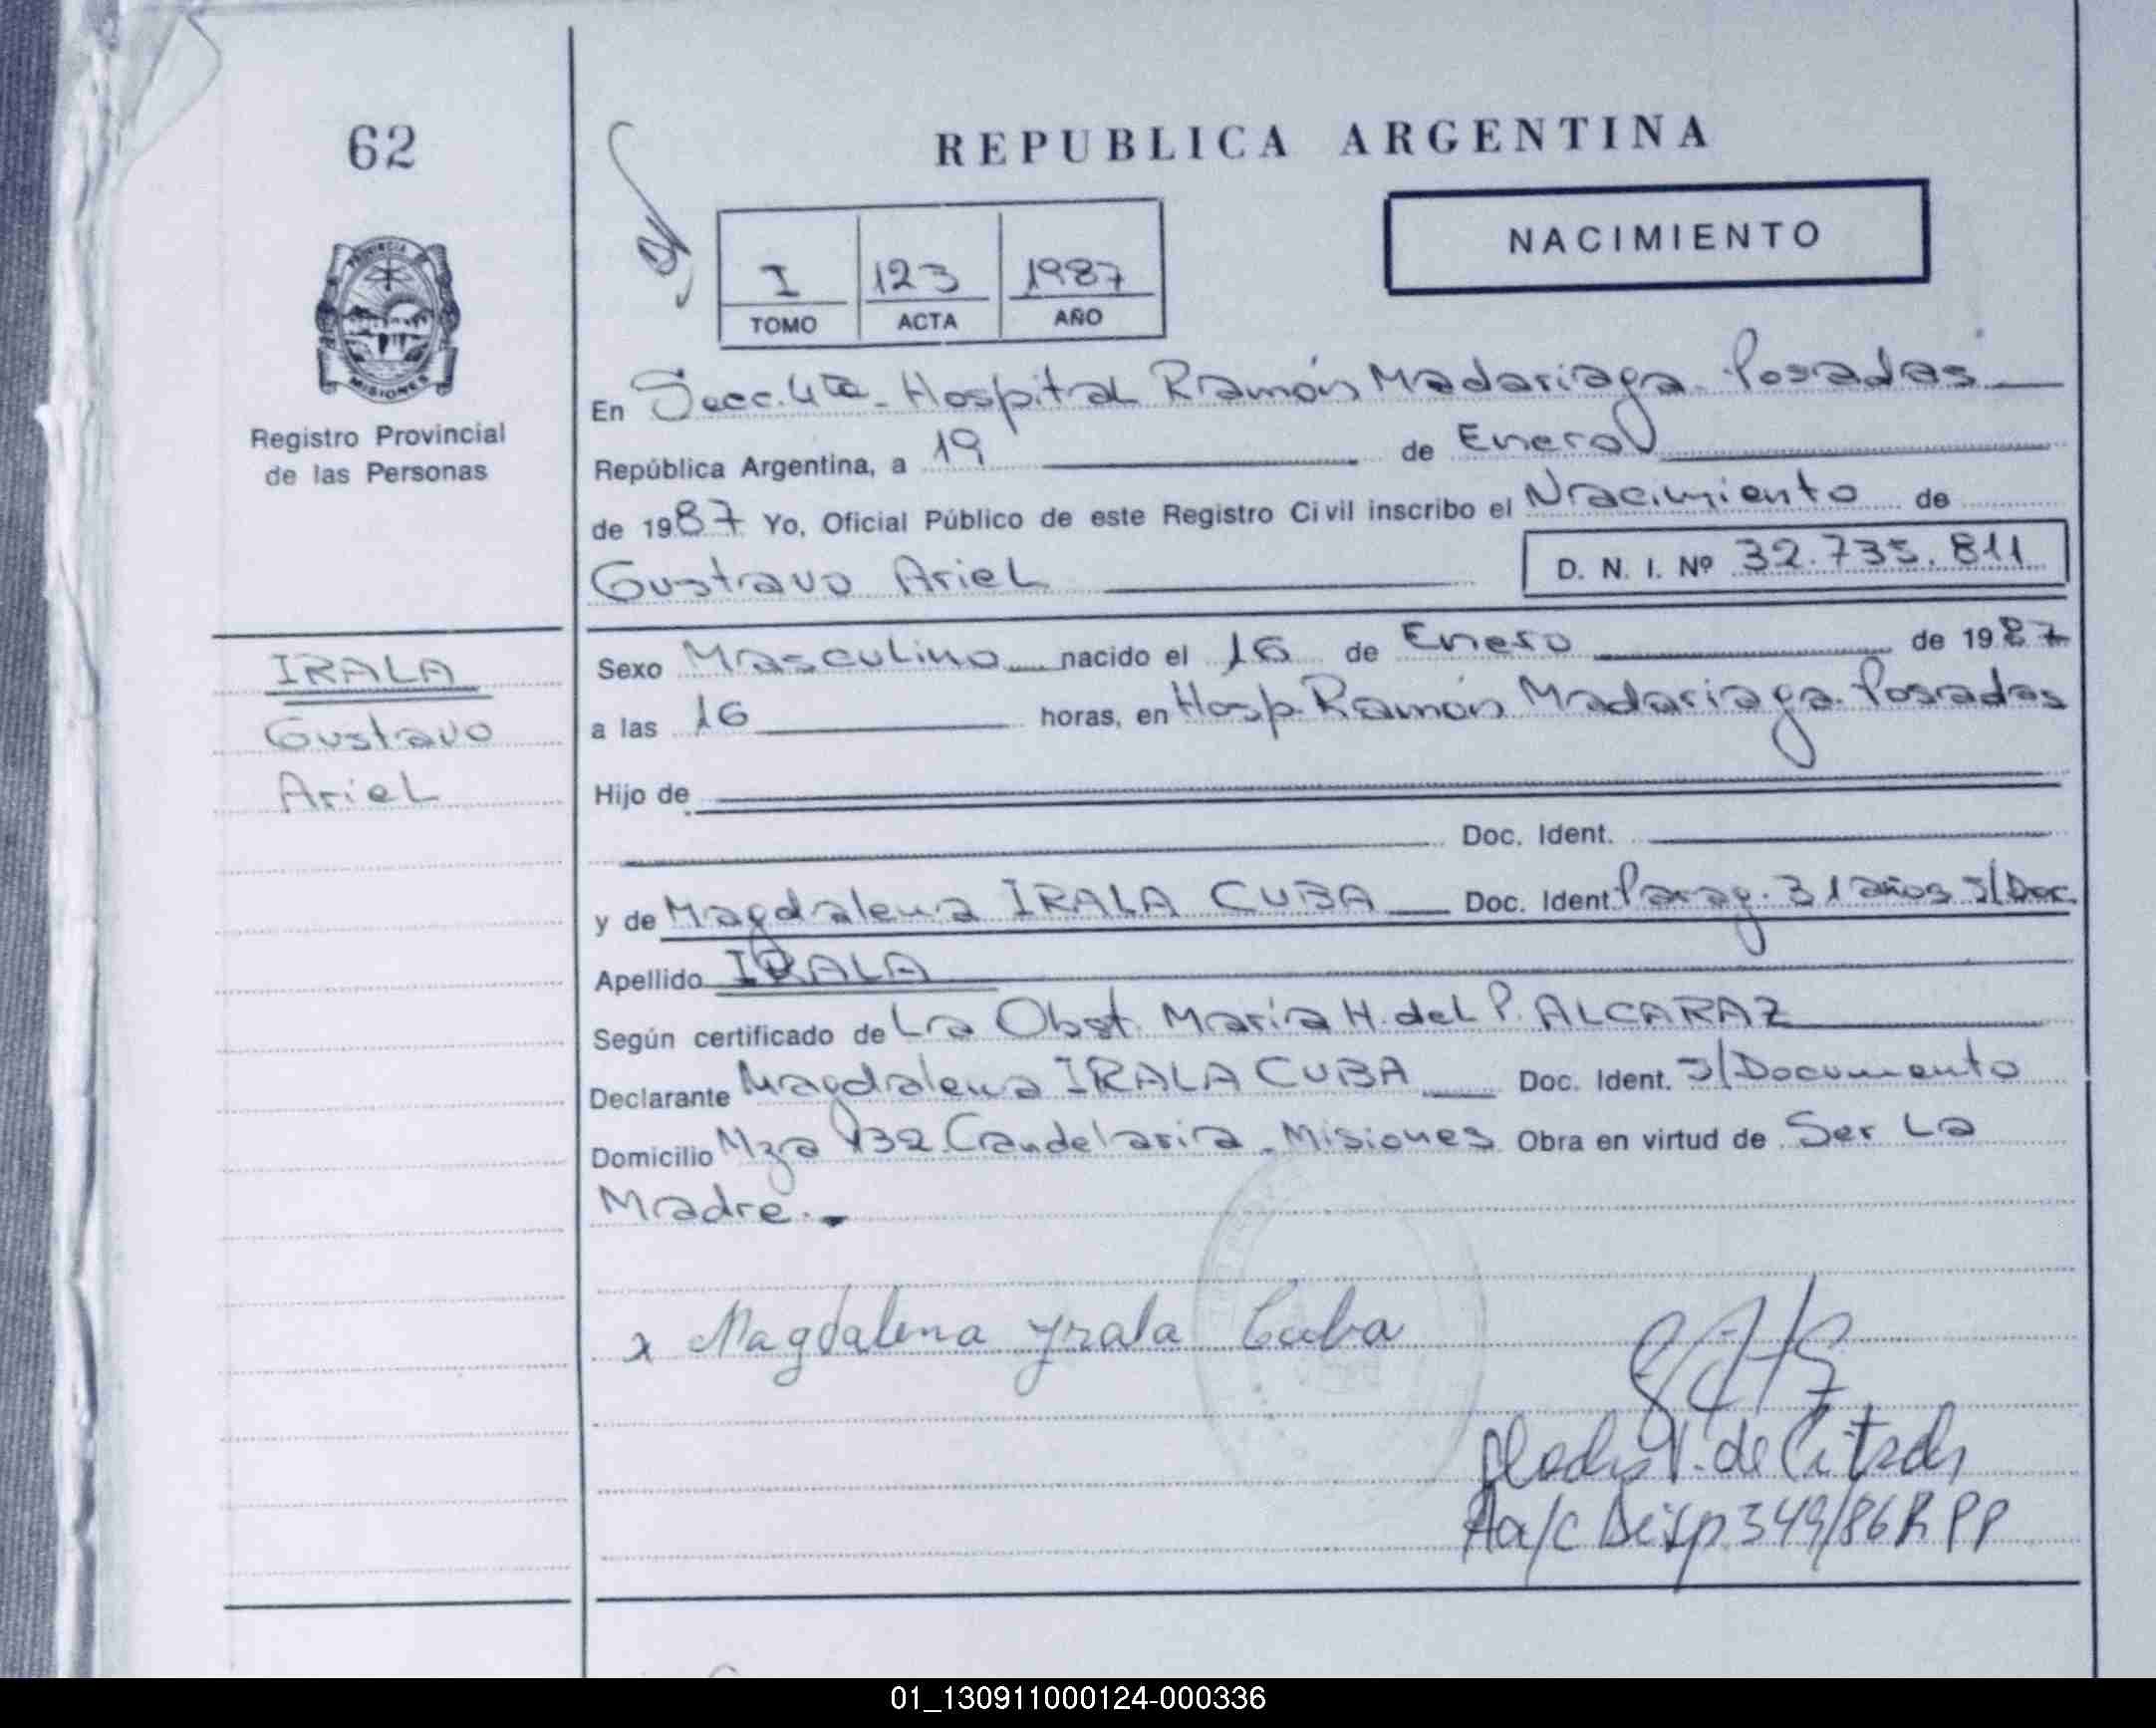 62
REPUBLICA ARGENTINA
NACIMIENTO
I 123 1987
TOMO ACTA AÑO
PROVINCIA DE
MISIONES
Registro Provincial
de las Personas
En Secc. 4ta. Hospital Ramón Madariaga. Posadas
República Argentina, a 19 de Enero
de 1987 Yo, Oficial Público de este Registro Civil inscribo el Nacimiento de
Gustavo Ariel D. N. I. Nº 32.735.811
IRALA
Gustavo
Ariel
Sexo Masculino nacido el 16 de Enero de 1987
a las 16 horas, en Hosp. Ramón Madariaga. Posadas
Hijo de
Doc. Ident.
y de Magdalena IRALA CUBA Doc. Ident. Parag. 31 años S/Doc.
Apellido IRALA
Según certificado de La Obst. María H. del P. ALCARAZ
Declarante Magdalena IRALA CUBA Doc. Ident. S/Documento
Domicilio Mza 132 Candelaria - Misiones Obra en virtud de Ser La
Madre.-
x Magdalena Yrala Cuba
V. de
Aa/c Disp 349/86 R P P
01_130911000124-000336